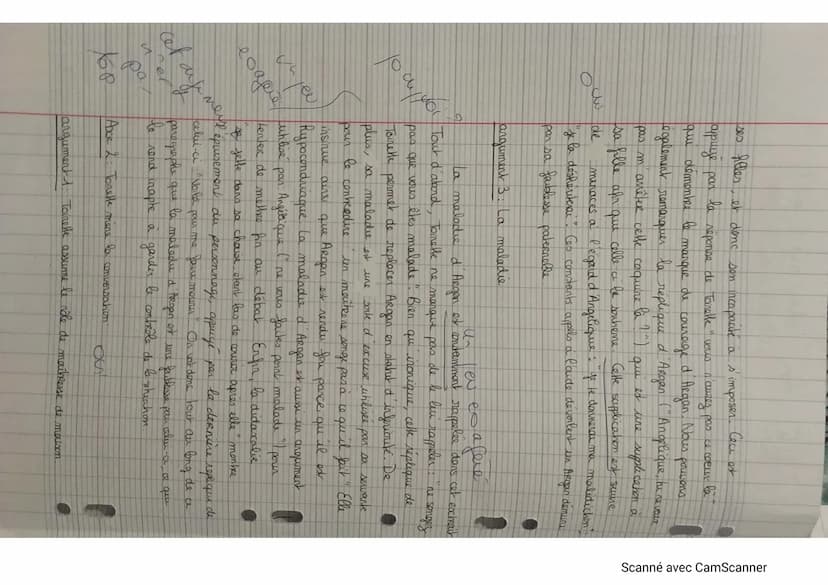 ses filles, et donc son incapacité à s'imposer. Ceci est
appuyé par la réponse de Toinette "vous n'aurez pas ce cœur là"
qui démontre le manque de courage d'Argan. Nous pouvons
également remarquer la réplique d'Argan ("Angélique, tu ne veux
pas m'arrêter cette coquine là ?") qui est une supplication à
sa fille afin que celle-ci le soutienne. Cette supplication est suivie
Oui
de menaces à l'égard d'Angélique : "je te donnerai ma malédiction",
"je la déshériterai". Ces constants appels à l'aide dévoilent un Argan démuni
par sa faiblesse paternelle
argument 3 : La maladie
Un peu exagéré
La maladie d'Argan est constamment rappelée dans cet extrait
Tout d'abord, Toinette ne manque pas de le lui rappeler : "ne songez
pas que vous êtes malade". Bien qu'ironique, cette réplique de
Toinette permet de replacer Argan en statut d'infériorité. De
plus, sa maladie est une sorte d'excuse utilisée par sa servante
pour le contredire "un maître ne songe pas à ce qu'il fait". Elle
insinue ainsi que Argan est rendu fou parce qu'il est
hypocondriaque. La maladie d'Argan est aussi un argument
un peu
utilisé par Angélique ("ne vous faites point malade") pour
exagéré
tenter de mettre fin au débat. Enfin, la didascalie
se jette dans sa chaise étant las de courir après elle" montre
l'épuisement du personnage, appuyé par la dernière réplique de
celui-ci "Voilà pour me faire mourir". On voit donc tout au long de ce
paragraphe que la maladie d'Argan est une faiblesse pour celui-ci, ce qui
le rend inapte à garder le contrôle de la situation
cet argument
pas
top
Axe 2 Toinette mène la conversation Oui
argument 1 Toinette assume le rôle de maîtresse de maison
Scanné avec CamScanner